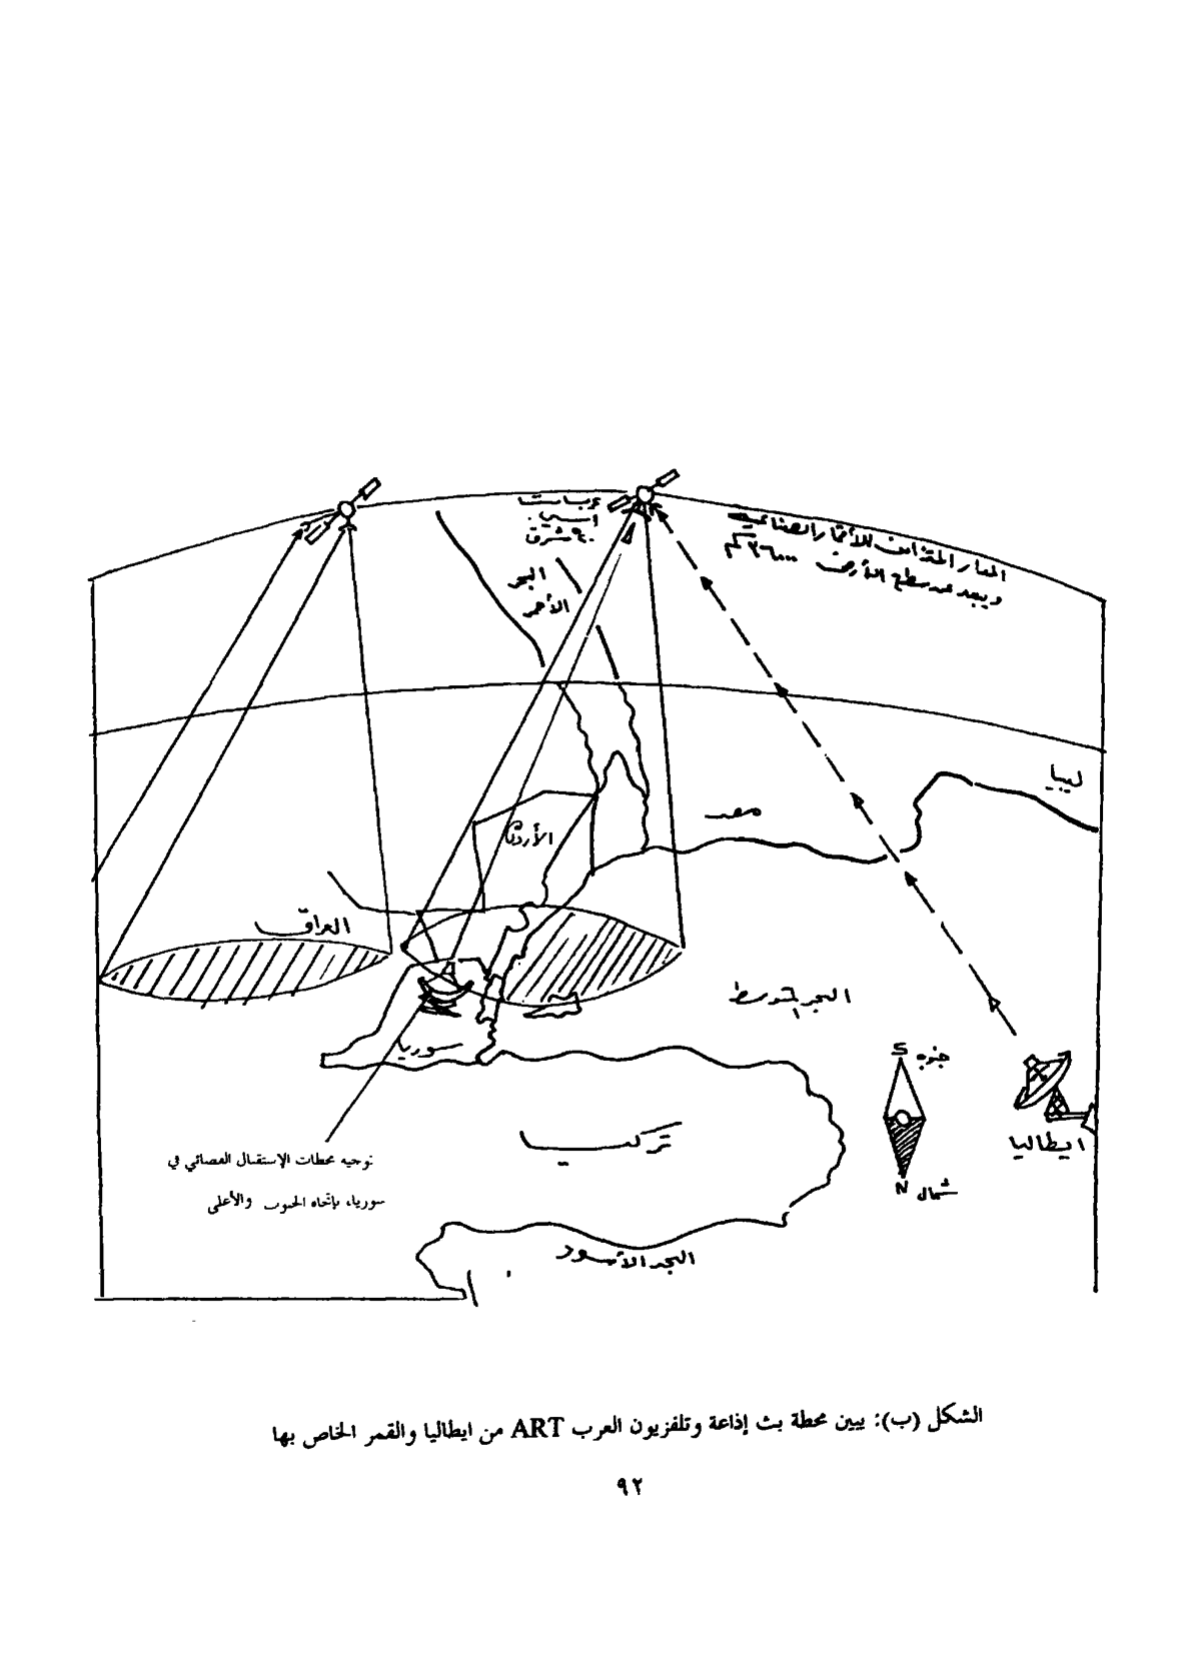 عربسات
شرق
المدار المتزامن للأقمار الصناعية
ويبعد عن سطح الأرض ٣٦٠٠٠ كم
البحر
الأحمر
ليبيا
مصر
الأردن
العراق
البحر المتوسط
سوريا
S جنوب
ايطاليا
تركيا
N شمال
توجيه محطات الإستقبال الفضائي في
سوريا، بإتجاه الجنوب والأعلى
البحر الأسود
الشكل (ب): يبين محطة بث إذاعة وتلفزيون العرب ART من ايطاليا والقمر الخاص بها
٩٢